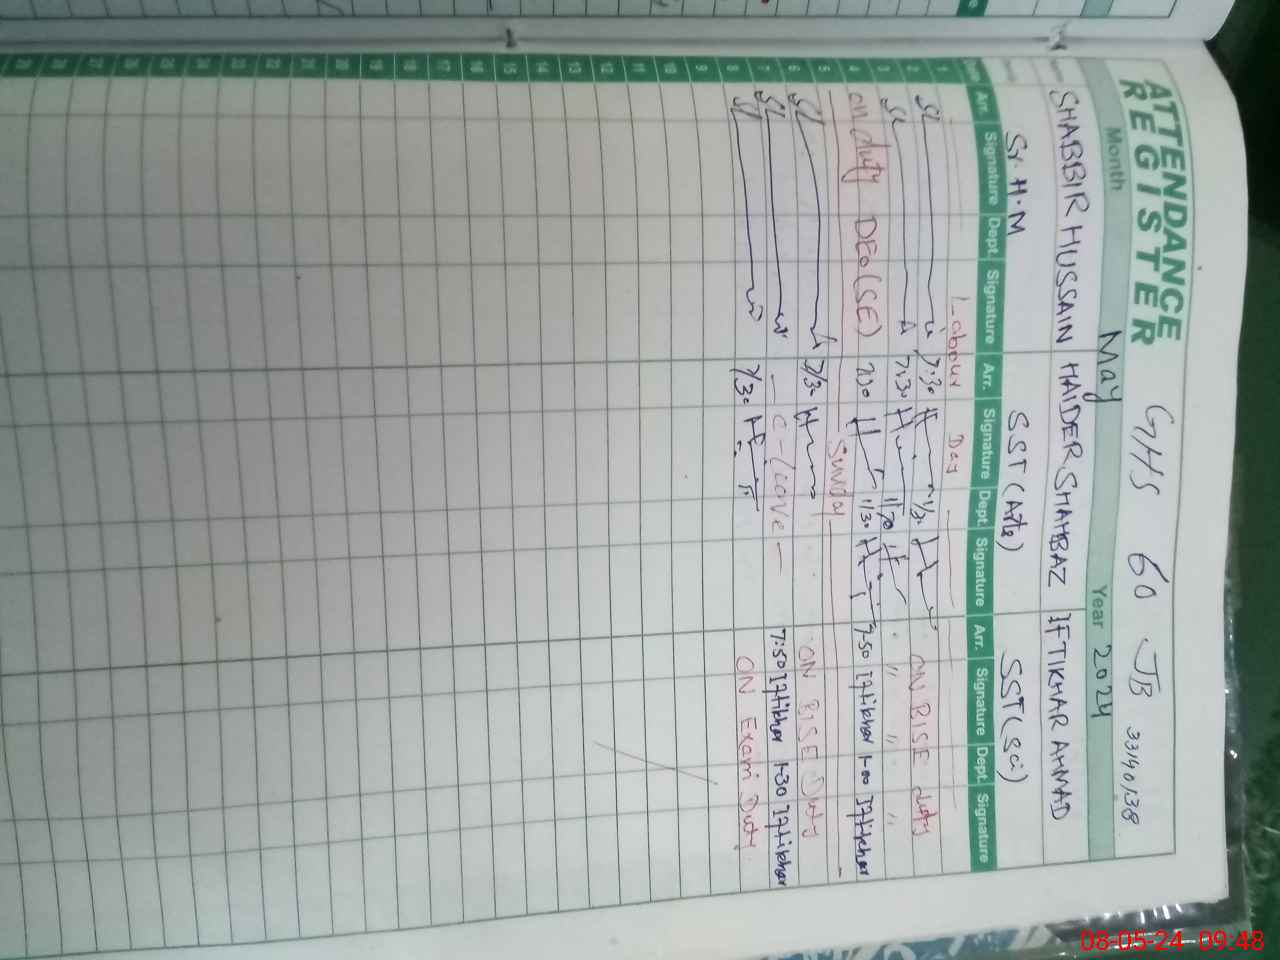 ATTENDANCE REGISTER
GHS 60 JB 33140138
Month May Year 2024
SHABBIR HUSSAIN HAIDER SHAHBAZ IFTIKHAR AHMAD
Sr. H.M SST (Arts) SST (Sci)
Arr. Signature Dept. Signature Arr. Signature Dept. Signature Arr. Signature Dept. Signature
1 Labour Day
2 SL 7:30 1/30 ON BISE duty
3 SL 7:30 11/30 " " "
4 on duty DEO (SE) 7:30 11/30 7:50 Iftikhar 1-00 Iftikhar
5 Sunday
6 SL 7/30 ON BISE Duty
7 SL C-leave 7:50 Iftikhar 1-30 Iftikhar
8 SL 7/30 ON Exam Duty
9
10
11
12
13
14
15
16
17
18
19
20
21
22
23
24
25
26
27
28
29
08-05-24 09:48